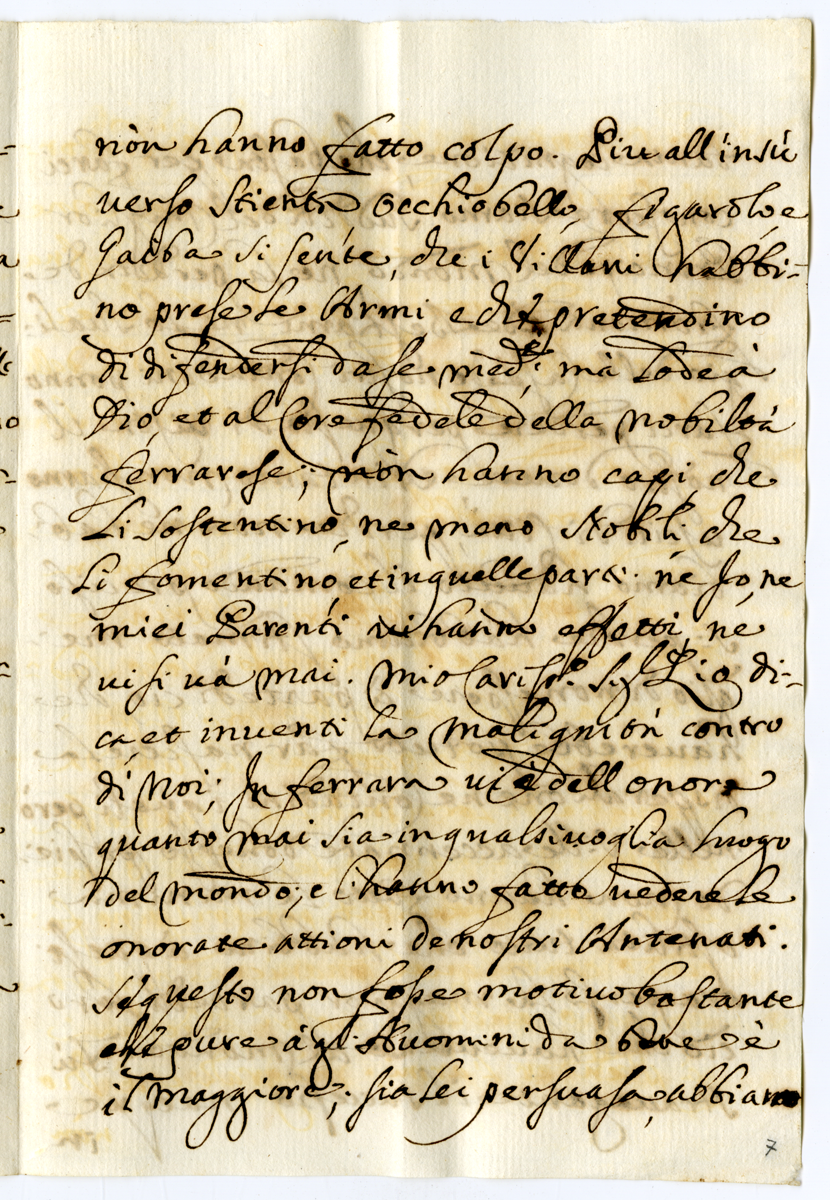 nòn hanno fatto colpo. Piu all'insù
verso Stientà Occhiobello, figarolo, e
Gaiba si sente, che i Villani habbi=
no prese le Armi e che pretendino
di difendersi da se med.i, mà Lode à
Dio, et al Core fedele della nobiltà
ferrarese; nòn hanno capi, che
li sostentino, ne meno Nobili che
li fomentino, et in quelle parti né Io, ne
miei Parenti vi hanno effetti, né
vi si và mai. Mio Cariss.o Sig.r Lio, di=
ca, et inventi la malignità contro
di Noi; In ferrara vi è dell'onore
quanto mai sia in qualsivoglia luogo
del mondo; e l'hanno fatto vedere le
onorate attioni de nostri Antenati.
Se questo non fosse motivo bastante
che pure à gl'Huomini da bene è
il maggiore; sia Lei persuasa, abbiamo
7